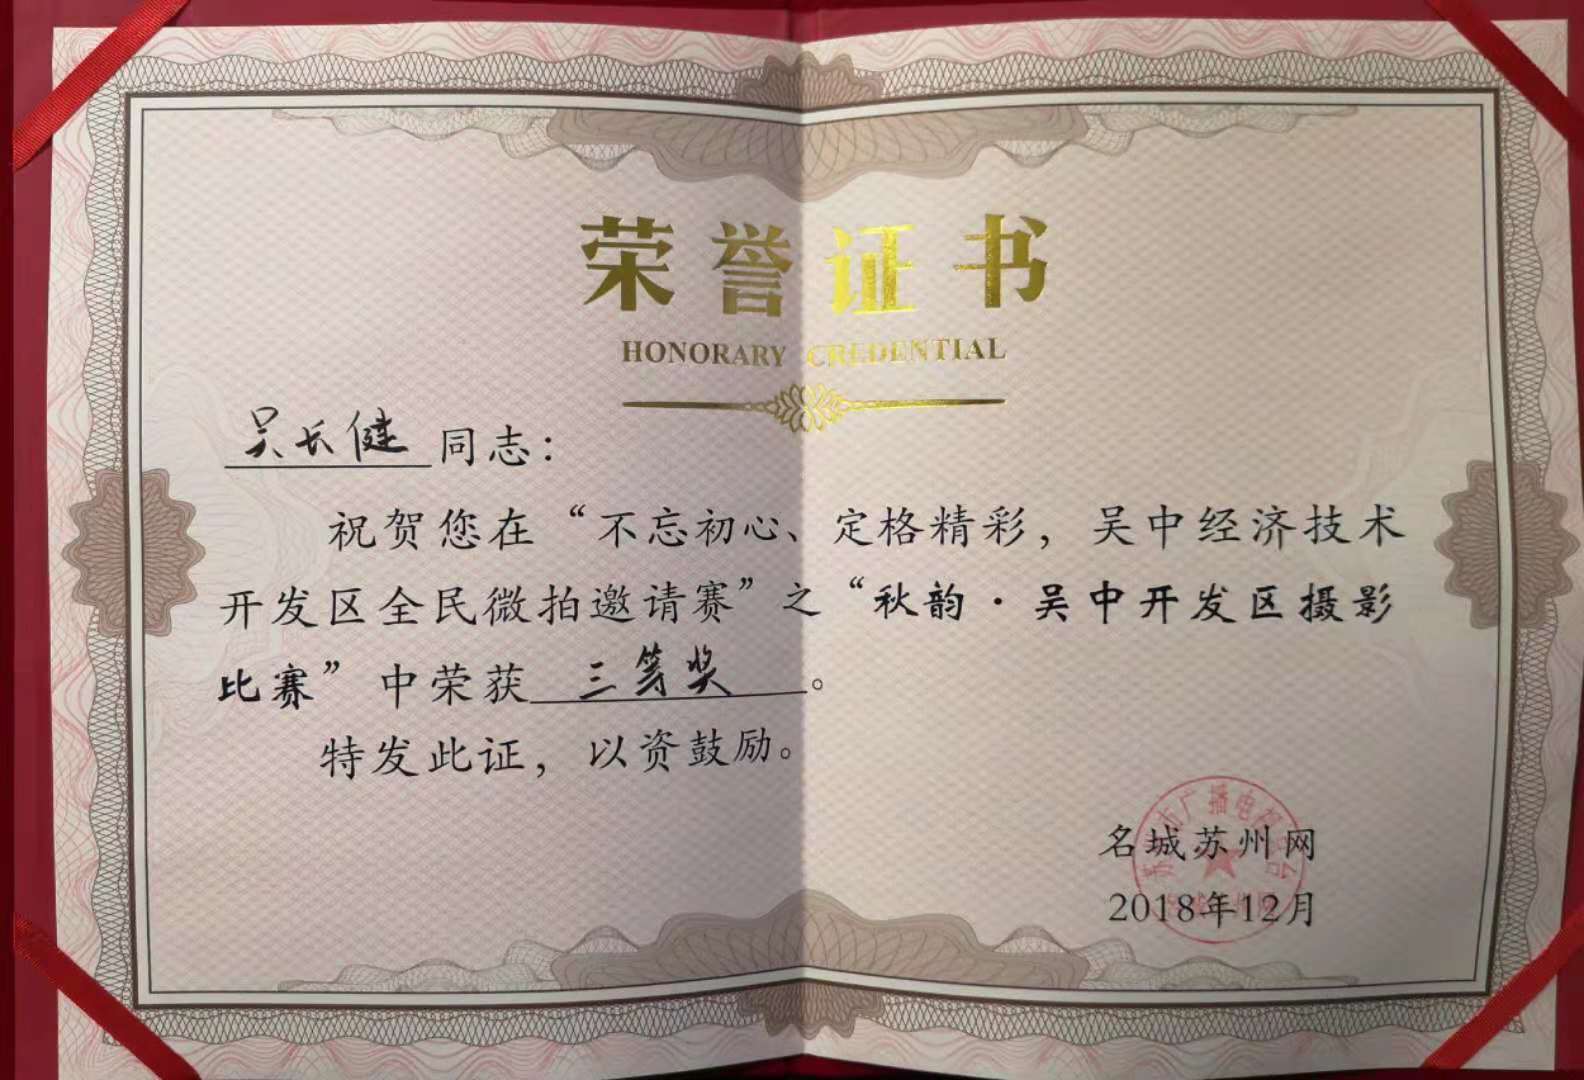 荣誉证书
HONORARY CREDENTIAL
吴长健同志：
祝贺您在“不忘初心、定格精彩，吴中经济技术
开发区全民微拍邀请赛”之“秋韵·吴中开发区摄影
比赛”中荣获 三等奖 。
特发此证，以资鼓励。
苏州市广播电视总台
名城苏州网
2018年12月